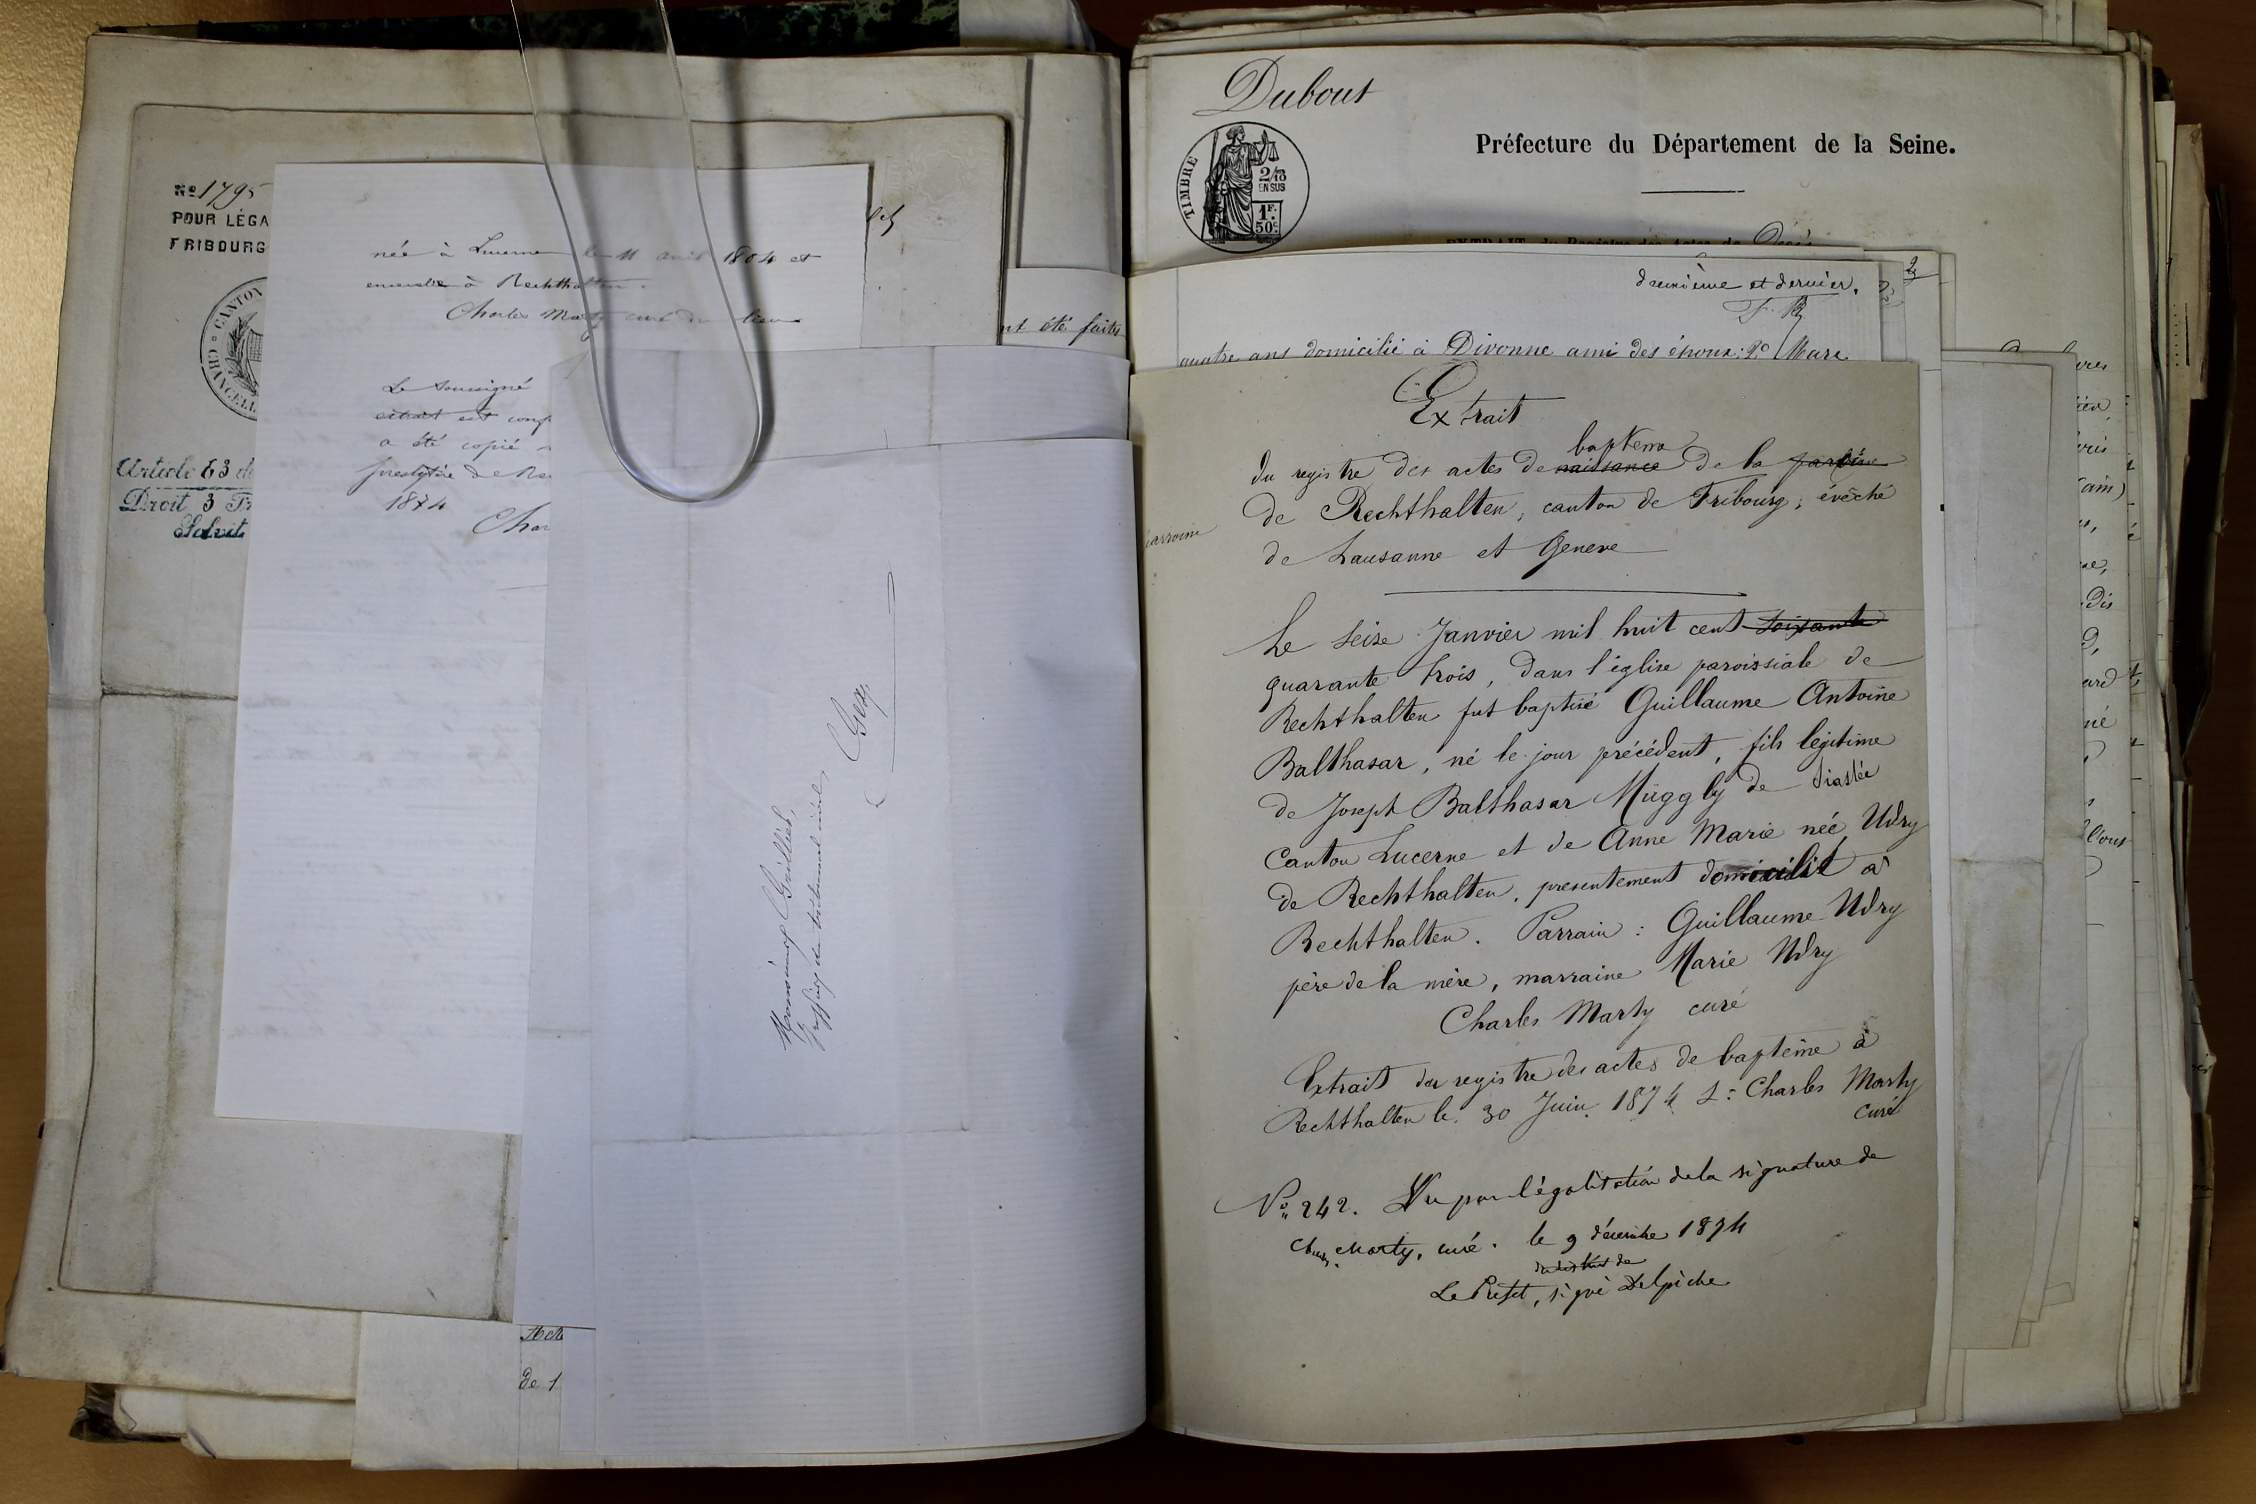 No 1795
POUR LÉGA
FRIBOURG
CANTON
CHANCELL
Article 63 de
Droit 3 Fr
née à Lucerne le 11 avril 1804 et
à Rechthalten.
Charles Marty curé du lieu
Le soussigné
extrait est conf
a été copié
presbytère de Re
1874
Char
nt été faites
Gex
Greffier du tribunal civil,
de 1
Dubout
TIMBRE
2/10
EN SUS
1F.
50c
Préfecture du Département de la Seine.
EXTRAIT du Registre des Actes de Décès
2
deuxième et dernier.
quatre ans domicilié à Divonne ami des époux; 2o Marc
Extrait
baptême
du registre des actes de naissance de la
de Rechthalten, canton de Fribourg, évêché
de Lausanne et Geneve
Le seize Janvier mil huit cent soixante
quarante trois, dans l'église paroissiale de
Rechthalten fut baptisé Guillaume Antoine
Balthasar, né le jour précédent, fils légitime
de Joseph Balthasar Müggly de
Canton Lucerne et de Anne Marie née Udry
de Rechthalten, presentement domicilié à
Rechthalten. Parrain : Guillaume Udry
père de la mère, marraine Marie Udry
Charles Marty curé
Extrait du registre des actes de baptême à
Rechthalten le 30 Juin 1874 S: Charles Marty
curé
No 242. Vu pour légalisation de la signature de
Marty, curé. le 9 décembre 1874
Le Préfet, signé Delpèche